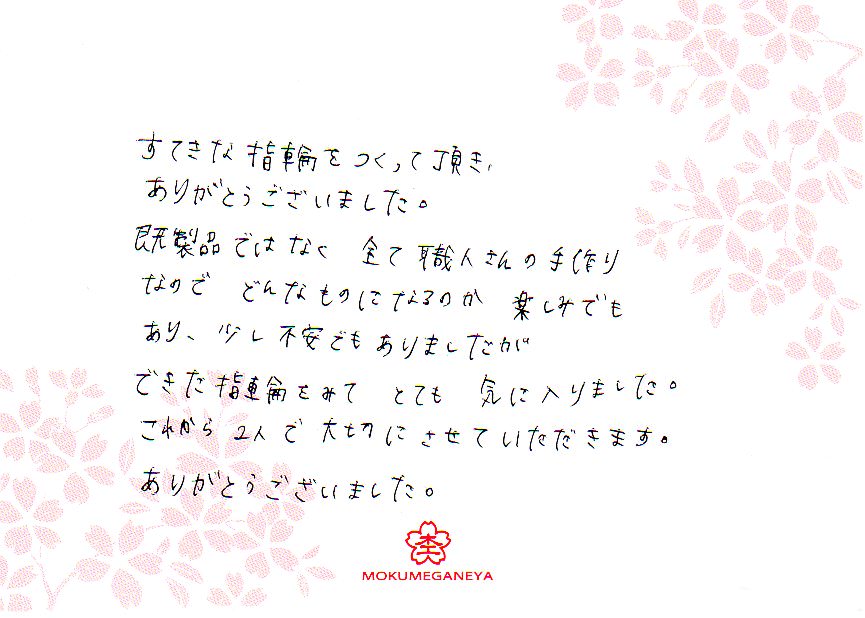 すてきな指輪をつくって頂き、
ありがとうございました。
既製品ではなく 全て職人さんの手作り
なので どんなものになるのか 楽しみでも
あり、少し不安でもありましたが
できた指輪をみて とても 気に入りました。
これから 2人で 大切にさせていただきます。
ありがとうございました。
杢
MOKUMEGANEYA